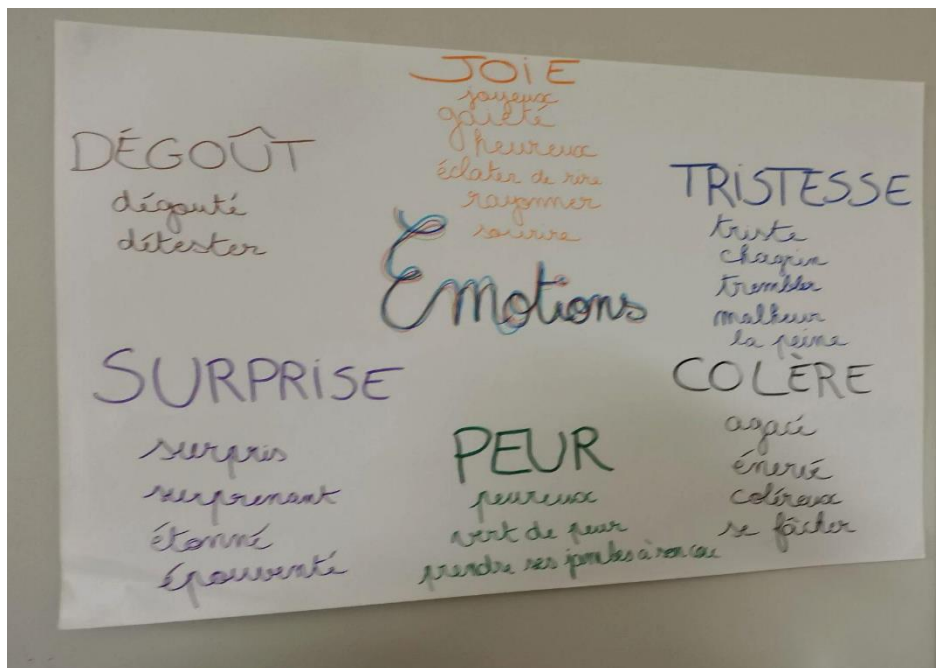 JOIE
joyeux
gaieté
heureux
éclater de rire
rayonner
sourire
DÉGOÛT
dégouté
détester
TRISTESSE
triste
chagrin
trembler
malheur
la peine
Émotions
SURPRISE
surpris
surprenant
étonné
épouventé
PEUR
peureux
vert de peur
prendre ses jambes à son cou
COLÈRE
agacé
énervé
coléreux
se fâcher